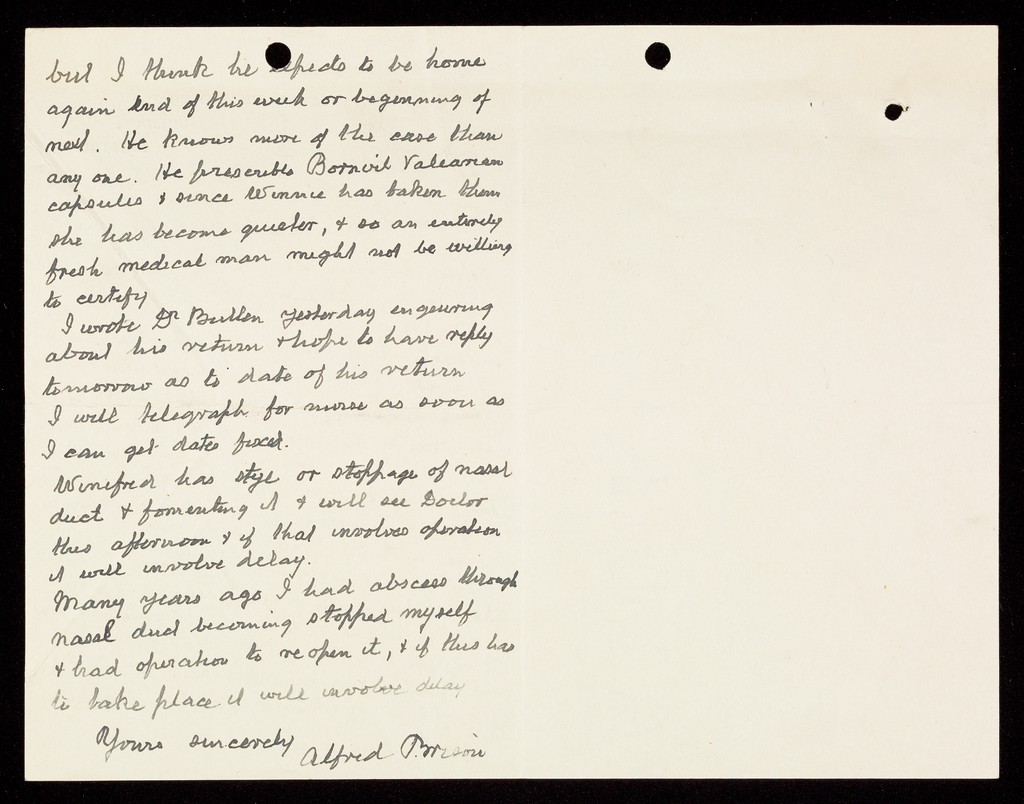 but I think he expects to be home
again end of this week or beginning of
next. He knows more of the case than
any one. He prescribes Bornvil Valearean
capsules & since Winnie has taken them
she has become quieter, & so an entirely
fresh medical man might not be willing
to certify
I wrote Dr Bullen yesterday enquiring
about his return & hope to have reply
tomorrow as to date of his return
I will telegraph for nurse as soon as
I can get dates fixed.
Winifred has stye or stoppage of nasal
duct & fomenting it & will see Doctor
this afternoon & if that involves operation
it will involve delay.
Many years ago I had abscess through
nasal duct becoming stopped myself
& had operation to reopen it, & if this has
to take place it will involve delay
Yours sincerely
Alfred